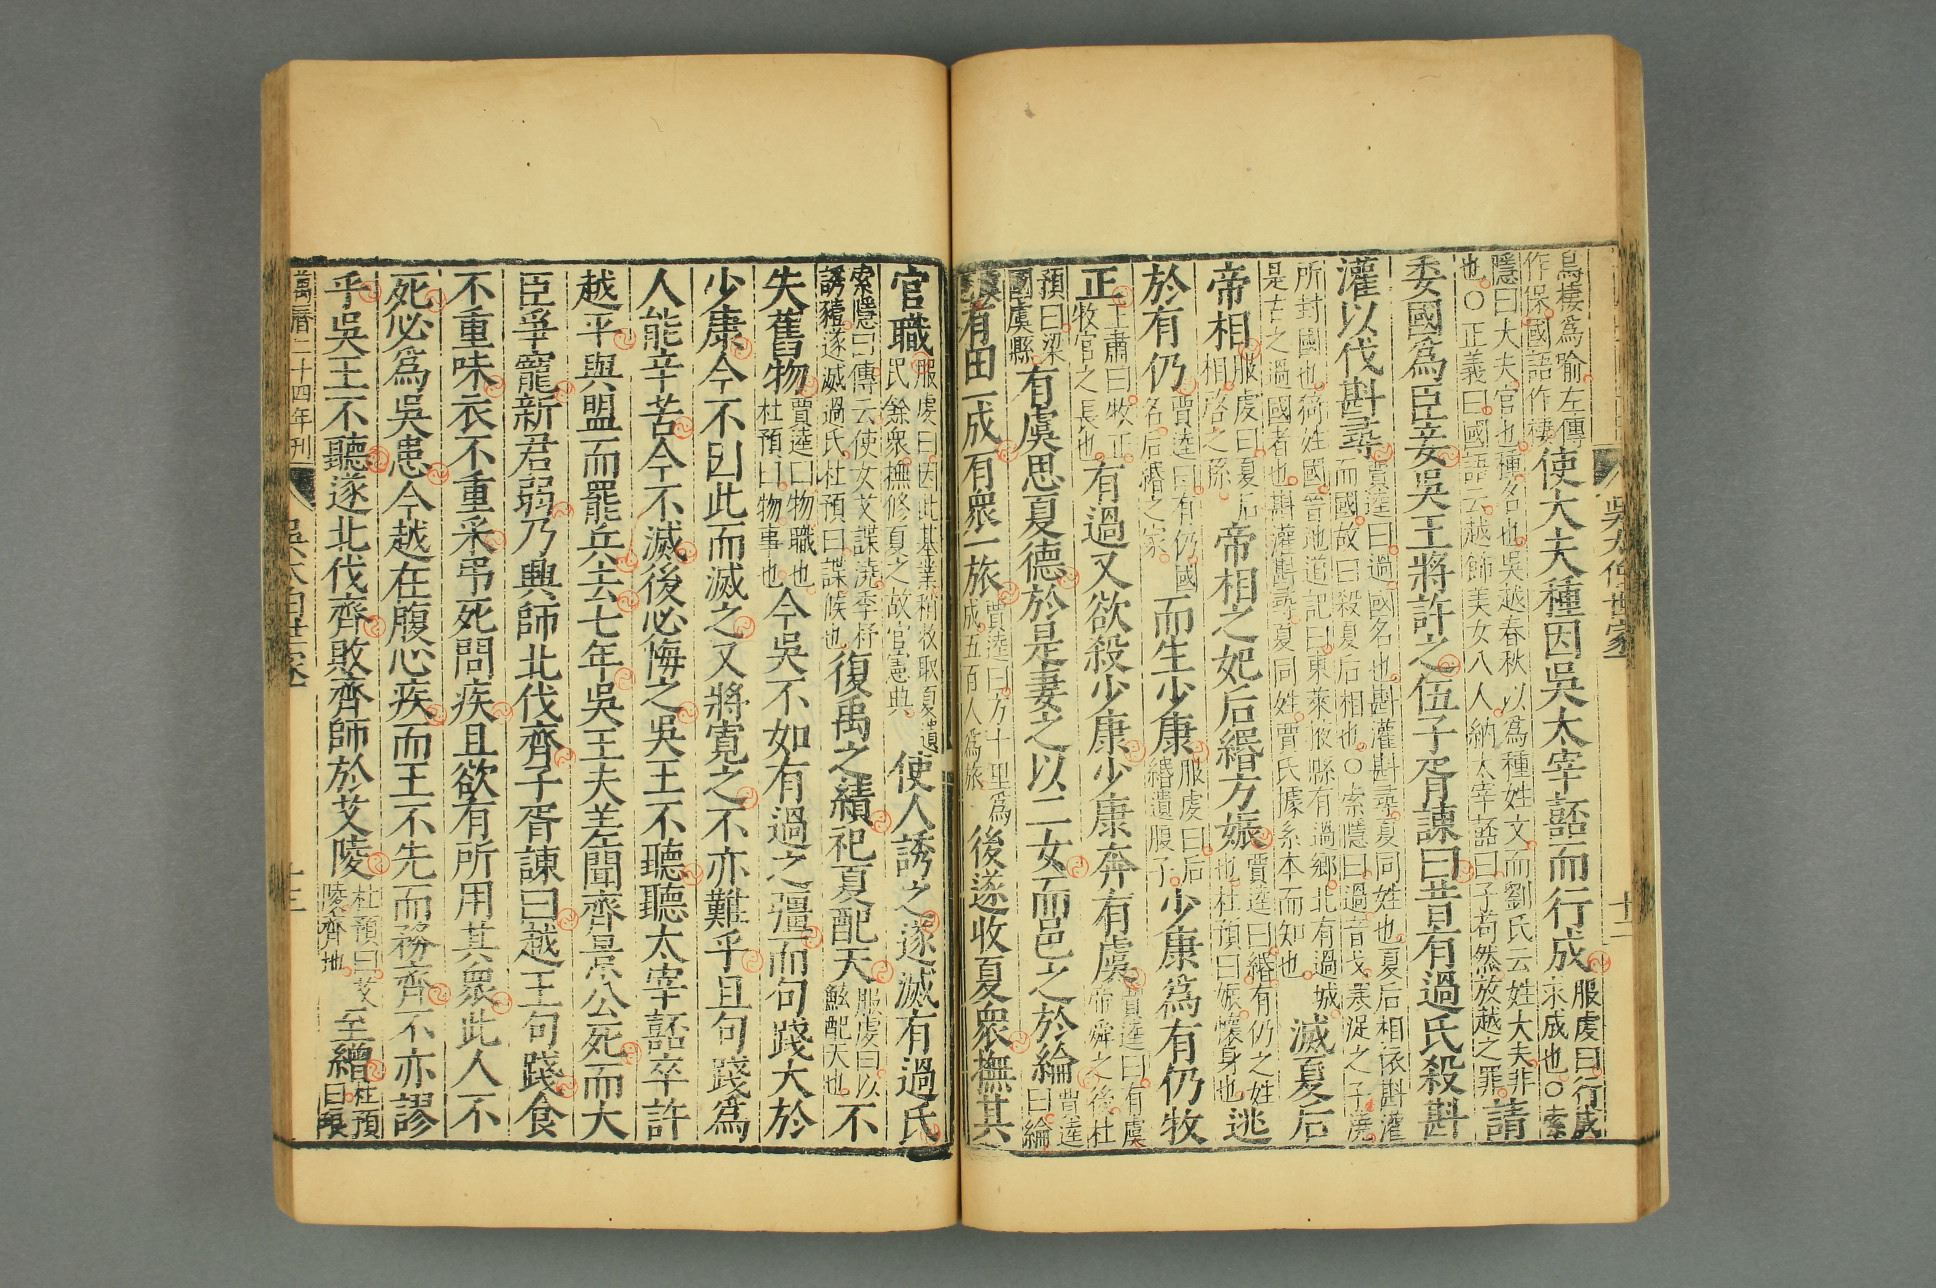 吳太伯世家一
十二
鳥棲爲喻左傳
作保國語作棲
使大夫種因吳太宰嚭而行成
服虔曰行成
求成也○索
隱曰大夫官也種名也吳越春秋以爲種姓文而劉氏云姓大夫非
也○正義曰國語云越飾美女八人納太宰嚭曰子苟然放越之罪
請
委國爲臣妾吳王將許之伍子胥諫曰昔有過氏殺斟
灌以伐斟尋
賈逵曰過國名也斟灌斟尋夏同姓也夏后相依斟灌
而國故曰殺夏后相也○索隱曰過音戈寒浞之子澆
所封國也猗姓國晉地道記曰東萊掖縣有過鄉北有過城
是古之過國者也斟灌斟尋夏同姓賈氏據系本而知也
滅夏后
帝相
服虔曰夏后
相啓之孫
帝相之妃后緡方娠
賈逵曰緡有仍之姓
也杜預曰娠懷身也
逃
於有仍
賈逵曰有仍國
名后緡之家
而生少康
服虔曰后
緡遺腹子
少康爲有仍牧
正
王肅曰牧正
牧官之長也
有過又欲殺少康少康奔有虞
賈逵曰有虞
帝舜之後杜
預曰梁
國虞縣
有虞思夏德於是妻之以二女而邑之於綸
賈逵
曰綸
有田一成有衆一旅
賈逵曰方十里爲
成五百人爲旅
後遂收夏衆撫其
官職
服虔曰因此基業稍收取夏遺
民餘衆撫修夏之故官憲典
使人誘之遂滅有過氏
索隱曰傳云使女艾諜澆季杼
誘豷遂滅過氏杜預曰諜候也
復禹之績祀夏配天
服虔曰以
鯀配天也
不
失舊物
賈逵曰物職也
杜預曰物事也
今吳不如有過之彊而句踐大於
少康今不因此而滅之又將寬之不亦難乎且句踐爲
人能辛苦今不滅後必悔之吳王不聽聽太宰嚭卒許
越平與盟而罷兵去七年吳王夫差聞齊景公死而大
臣爭寵新君弱乃興師北伐齊子胥諫曰越王句踐食
不重味衣不重采弔死問疾且欲有所用其衆此人不
死必爲吳患今越在腹心疾而王不先而務齊不亦謬
乎吳王不聽遂北伐齊敗齊師於艾陵
杜預曰艾
陵齊地
至繒
杜預
曰琅
萬曆二十四年刊
吳太伯世家一
十三